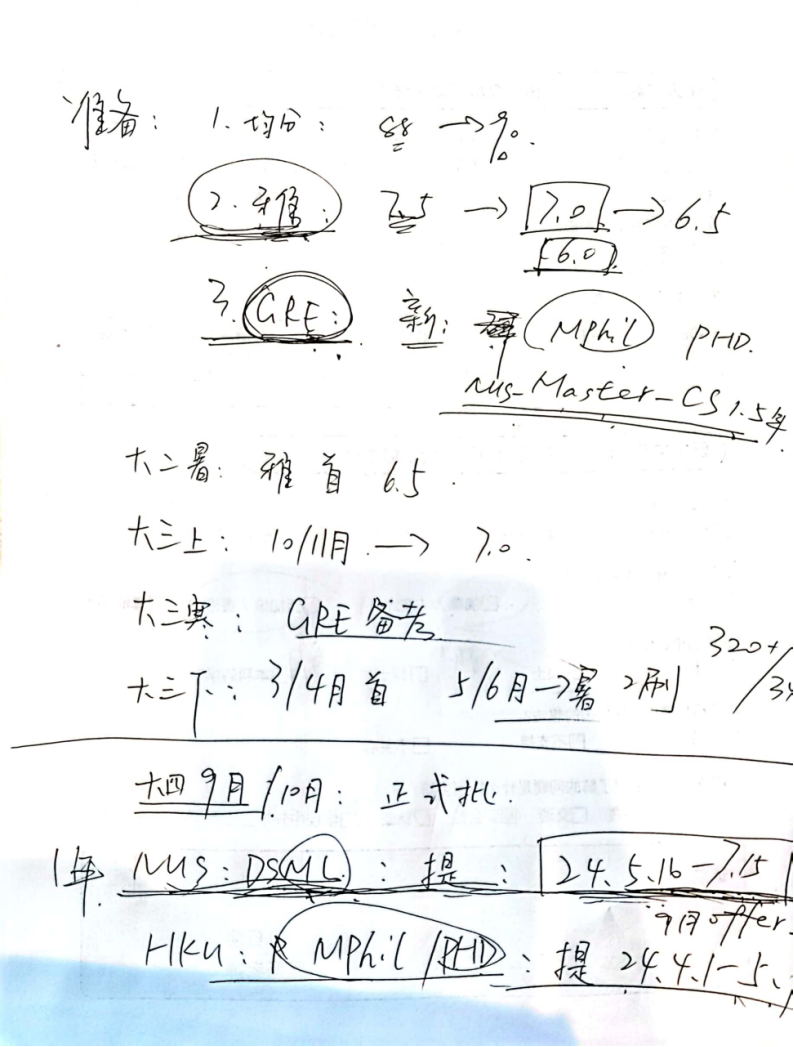 准备: 1. 均分: 88 → 90.
2. 雅: 7.5 → 7.0 → 6.5
(6.0)
3. GRE: 新: MPhil PHD.
NUS-Master-CS 1.5年
大二暑: 雅 首 6.5.
大三上: 10/11月. → 7.0.
大三寒: GRE 备考
320+/
大三下: 3/4月 首 5/6月→暑 2刷
大四 9月/10月: 正式批.
1年 NUS: DSML: 提: 24.5.16-7.15
9月offer
HKU: MPhil/PHD: 提 24.4.1-5.